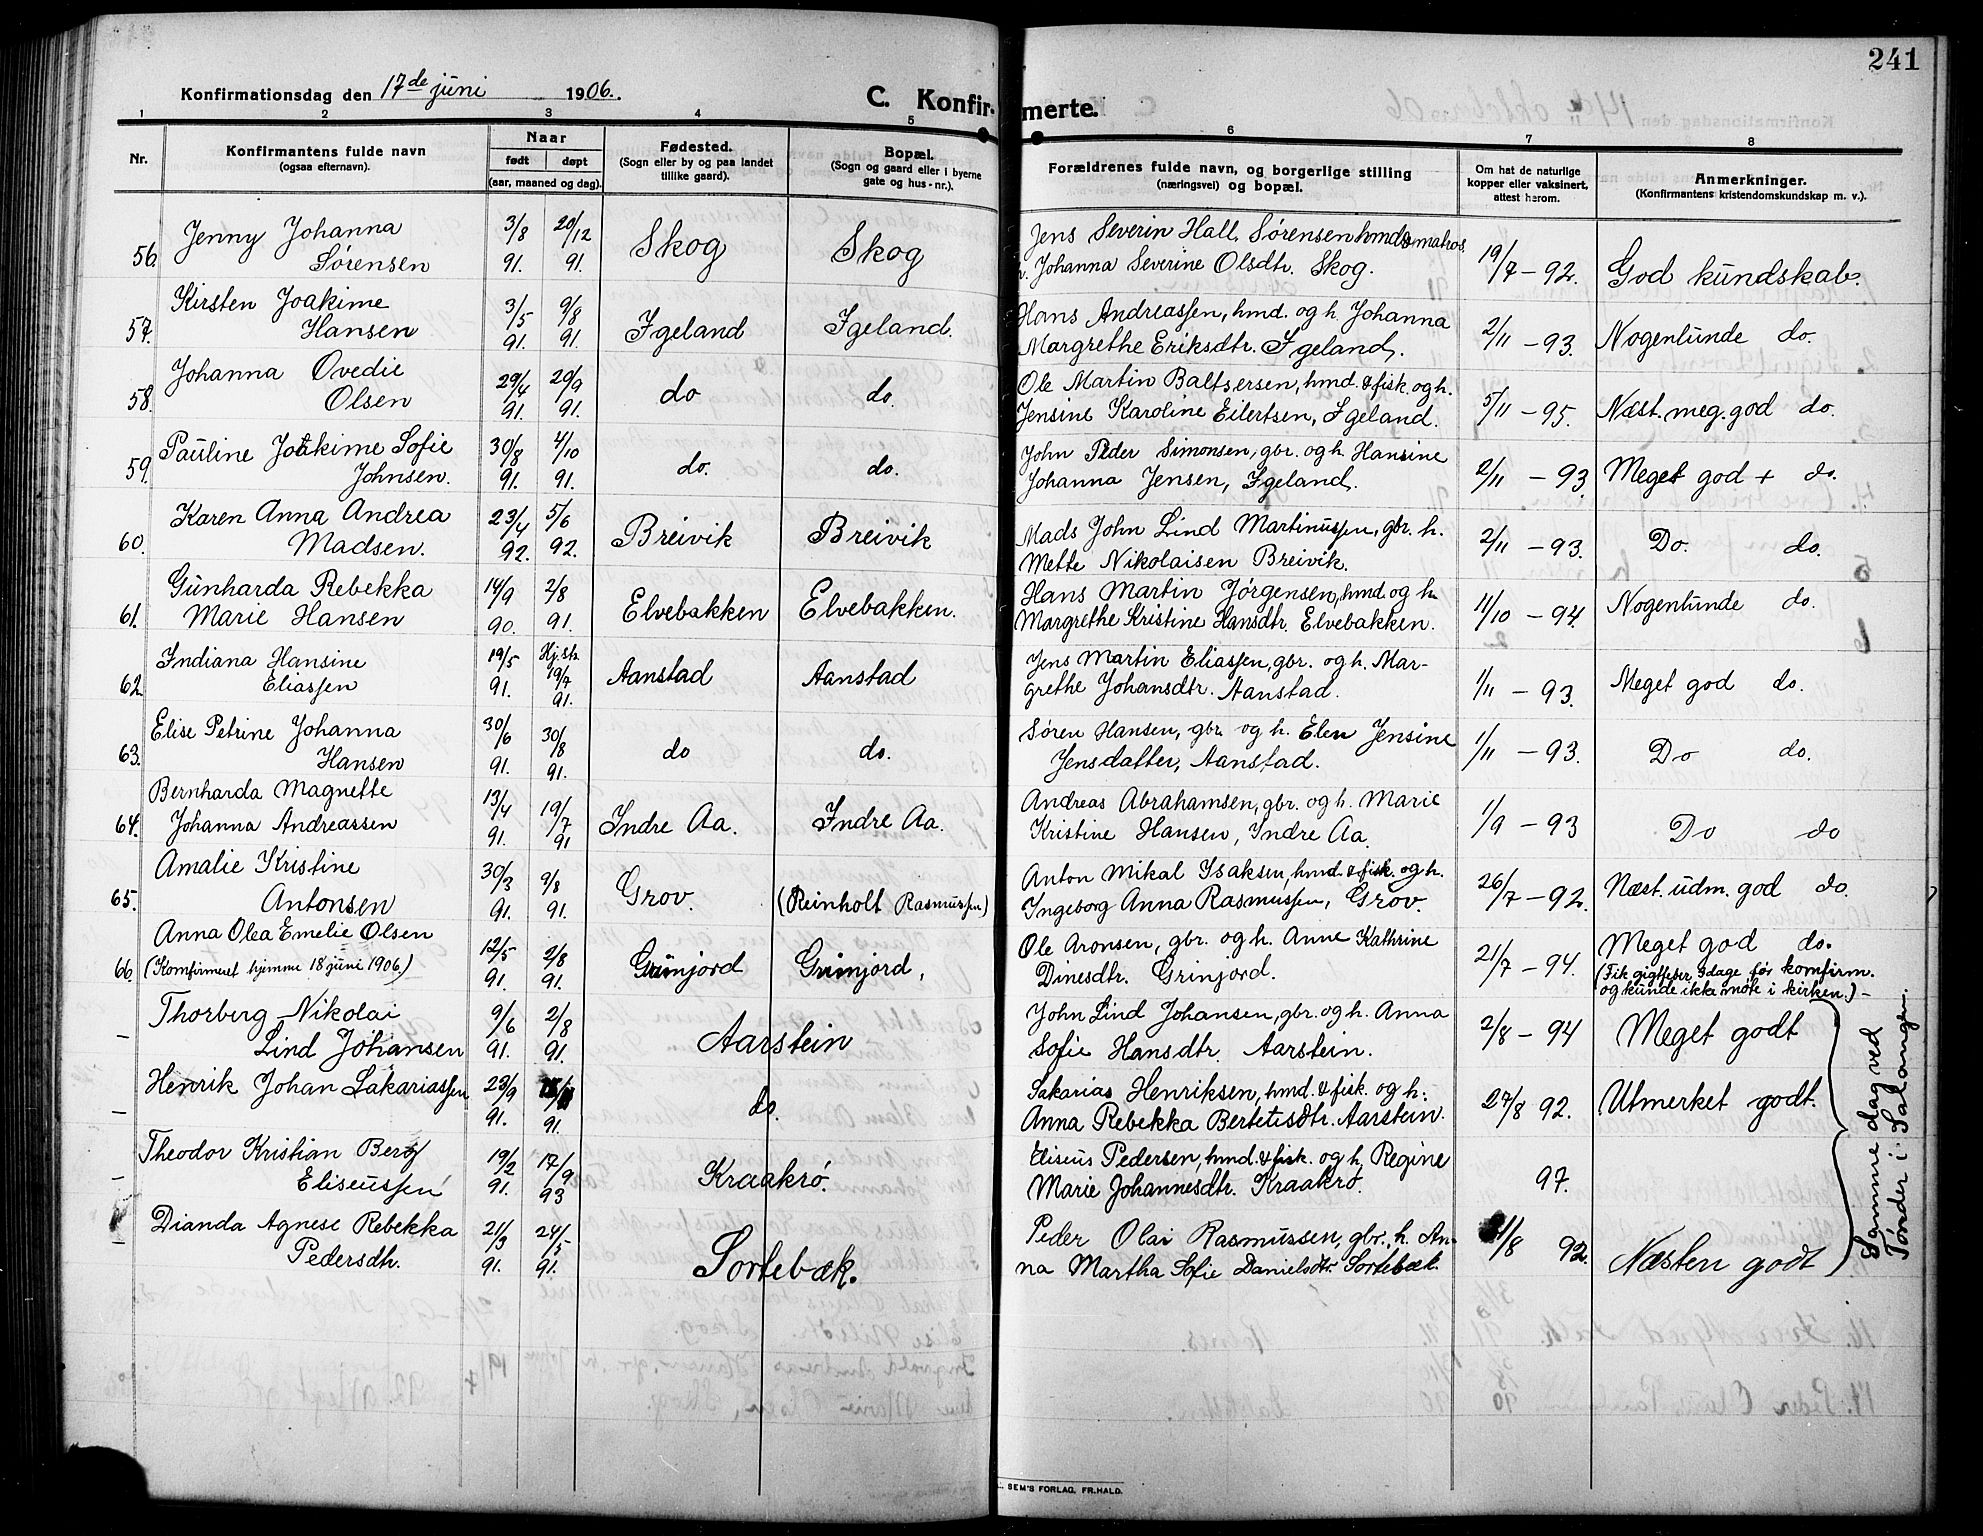 241
Konfirmationsdag den 17de juni 1906.
C. Konfir-merte.
1 2 3 4 5 6 7 8
Nr.
Konfirmantens fulde navn
(ogsaa efternavn).
Naar
født døpt
(aar, maaned og dag).
Fødested.
(Sogn eller by og paa landet
tillike gaard).
Bopæl.
(Sogn og gaard eller i byerne
gate og hus-nr.).
Forældrenes fulde navn, og borgerlige stilling
(næringsvei) og bopæl.
Om hat de naturlige
kopper eller vaksinert,
attest herom.
Anmerkninger.
(Konfirmantens kristendomskundskap m. v.).
Jenny Johanna 3/8 20/12 Jens Severin Hall Sørensen hmd & matros
56. Sørensen 91. 91. Skog Skog h. Johanna Severine Olsdtr. Skog. 19/7 – 92. God kundskab.
Kirsten Joakime 3/5 9/8 Hans Andreassen, hmd. og h. Johanna
57. Hansen 91. 91. Igeland Igeland. Margrethe Eriksdtr. Igeland. 2/11 – 93. Nogenlunde do.
Johanna Ovedie 29/4 20/9 Ole Martin Baltsersen, hmd. & fisk. og h.
58. Olsen 91. 91. do do. Jensine Karoline Eilertsen, Igeland. 5/11 – 95. Næst. meg. god do.
Pauline Joakime Sofie 30/8 4/10 John Peder Simonsen, gbr. og h. Hansine
59. Johnsen. 91. 91. do. do. Johanna Jensen, Igeland. 2/11 – 93. Meget god + do.
Karen Anna Andrea 23/4 5/6 Mads John Lind Martinussen, gbr. h.
60. Madsen. 92. 92. Breivik Breivik Mette Nikolaisen Breivik. 2/11 – 93. Do. do.
Gunharda Rebekka 14/9 2/8 Hans Martin Jørgensen, hmd og h.
61. Marie Hansen 90. 91. Elvebakken Elvebakken. Margrethe Kristine Hansdtr. Elvebakken. 11/10 – 94. Nogenlunde do.
Indiana Hansine 19/5 Hj.st. 19/7 Jens Martin Eliassen, gbr. og h. Mar-
62. Eliassen 91. 91. Aanstad Aanstad grethe Johansdtr. Aanstad. 1/11 – 93. Meget god do.
Elise Petrine Johanna 30/6 30/8 Søren Hansen, gbr. og h. Elen Jensine
63. Hansen 91. 91. do do. Jensdatter, Aanstad. 1/11 – 93. Do do.
Bernharda Magnette 13/4 19/7 Andreas Abrahamsen, gbr. og h. Marie
64. Johanna Andreassen 91. 91 Indre Aa. Indre Aa. Kristine Hansen, Indre Aa. 1/9 – 93 Do do
Amalie Kristine 30/3 9/8 Anton Mikal Isaksen, hmd. & fisk. og h.
65. Antonsen 91. 91. Grov. (Reinholt Rasmussen) Ingeborg Anna Rasmussen, Grov. 26/7 – 92. Næst. udm. god do.
Anna Olea Emelie Olsen 12/5 2/8 Ole Aronsen, gbr. og h. Anne Kathrine Meget god do.
66. (Komfirmert hjemme 18 juni 1906) 91. 91. Grinjord Grinjord, Dinesdtr. Grinjord. 21/7 – 94. (Fik gigtfeber 3 dage før komfirm.
og kunde ikke møte i kirken.) –
Thorberg Nikolai 9/6 2/8 John Lind Johansen, gbr. og h. Anna
– Lind Johansen 91. 91. Aarstein Sofie Hansdtr. Aarstein. 2/8 – 94 Meget godt
Henrik Johan Sakariassen 23/9 Sakarias Henriksen, hmd. & fisk. og h.
– 91. 91. do. Anna Rebekka Berteusdtr. Aarstein. 27/8 92. Utmerket godt.
Theodor Kristian Berg 19/2 17/9 Eliseus Pedersen, hmd. & fisk. og h. Regine
– Eliseussen 91. 93 Kraakrø. Marie Johannesdtr. Kraakrø. 97.
Dianda Agnese Rebekka 21/3 24/5 Peder Olai Rasmussen, gbr. h. An-
– Pedersdtr. 91. 91. Sortebæk. na Martha Sofie Danielsdtr. Sortebæk. 92. Næsten godt
Samme dag ved
Tønder i Salangen.
SEM'S FORLAG, FR.HALD.